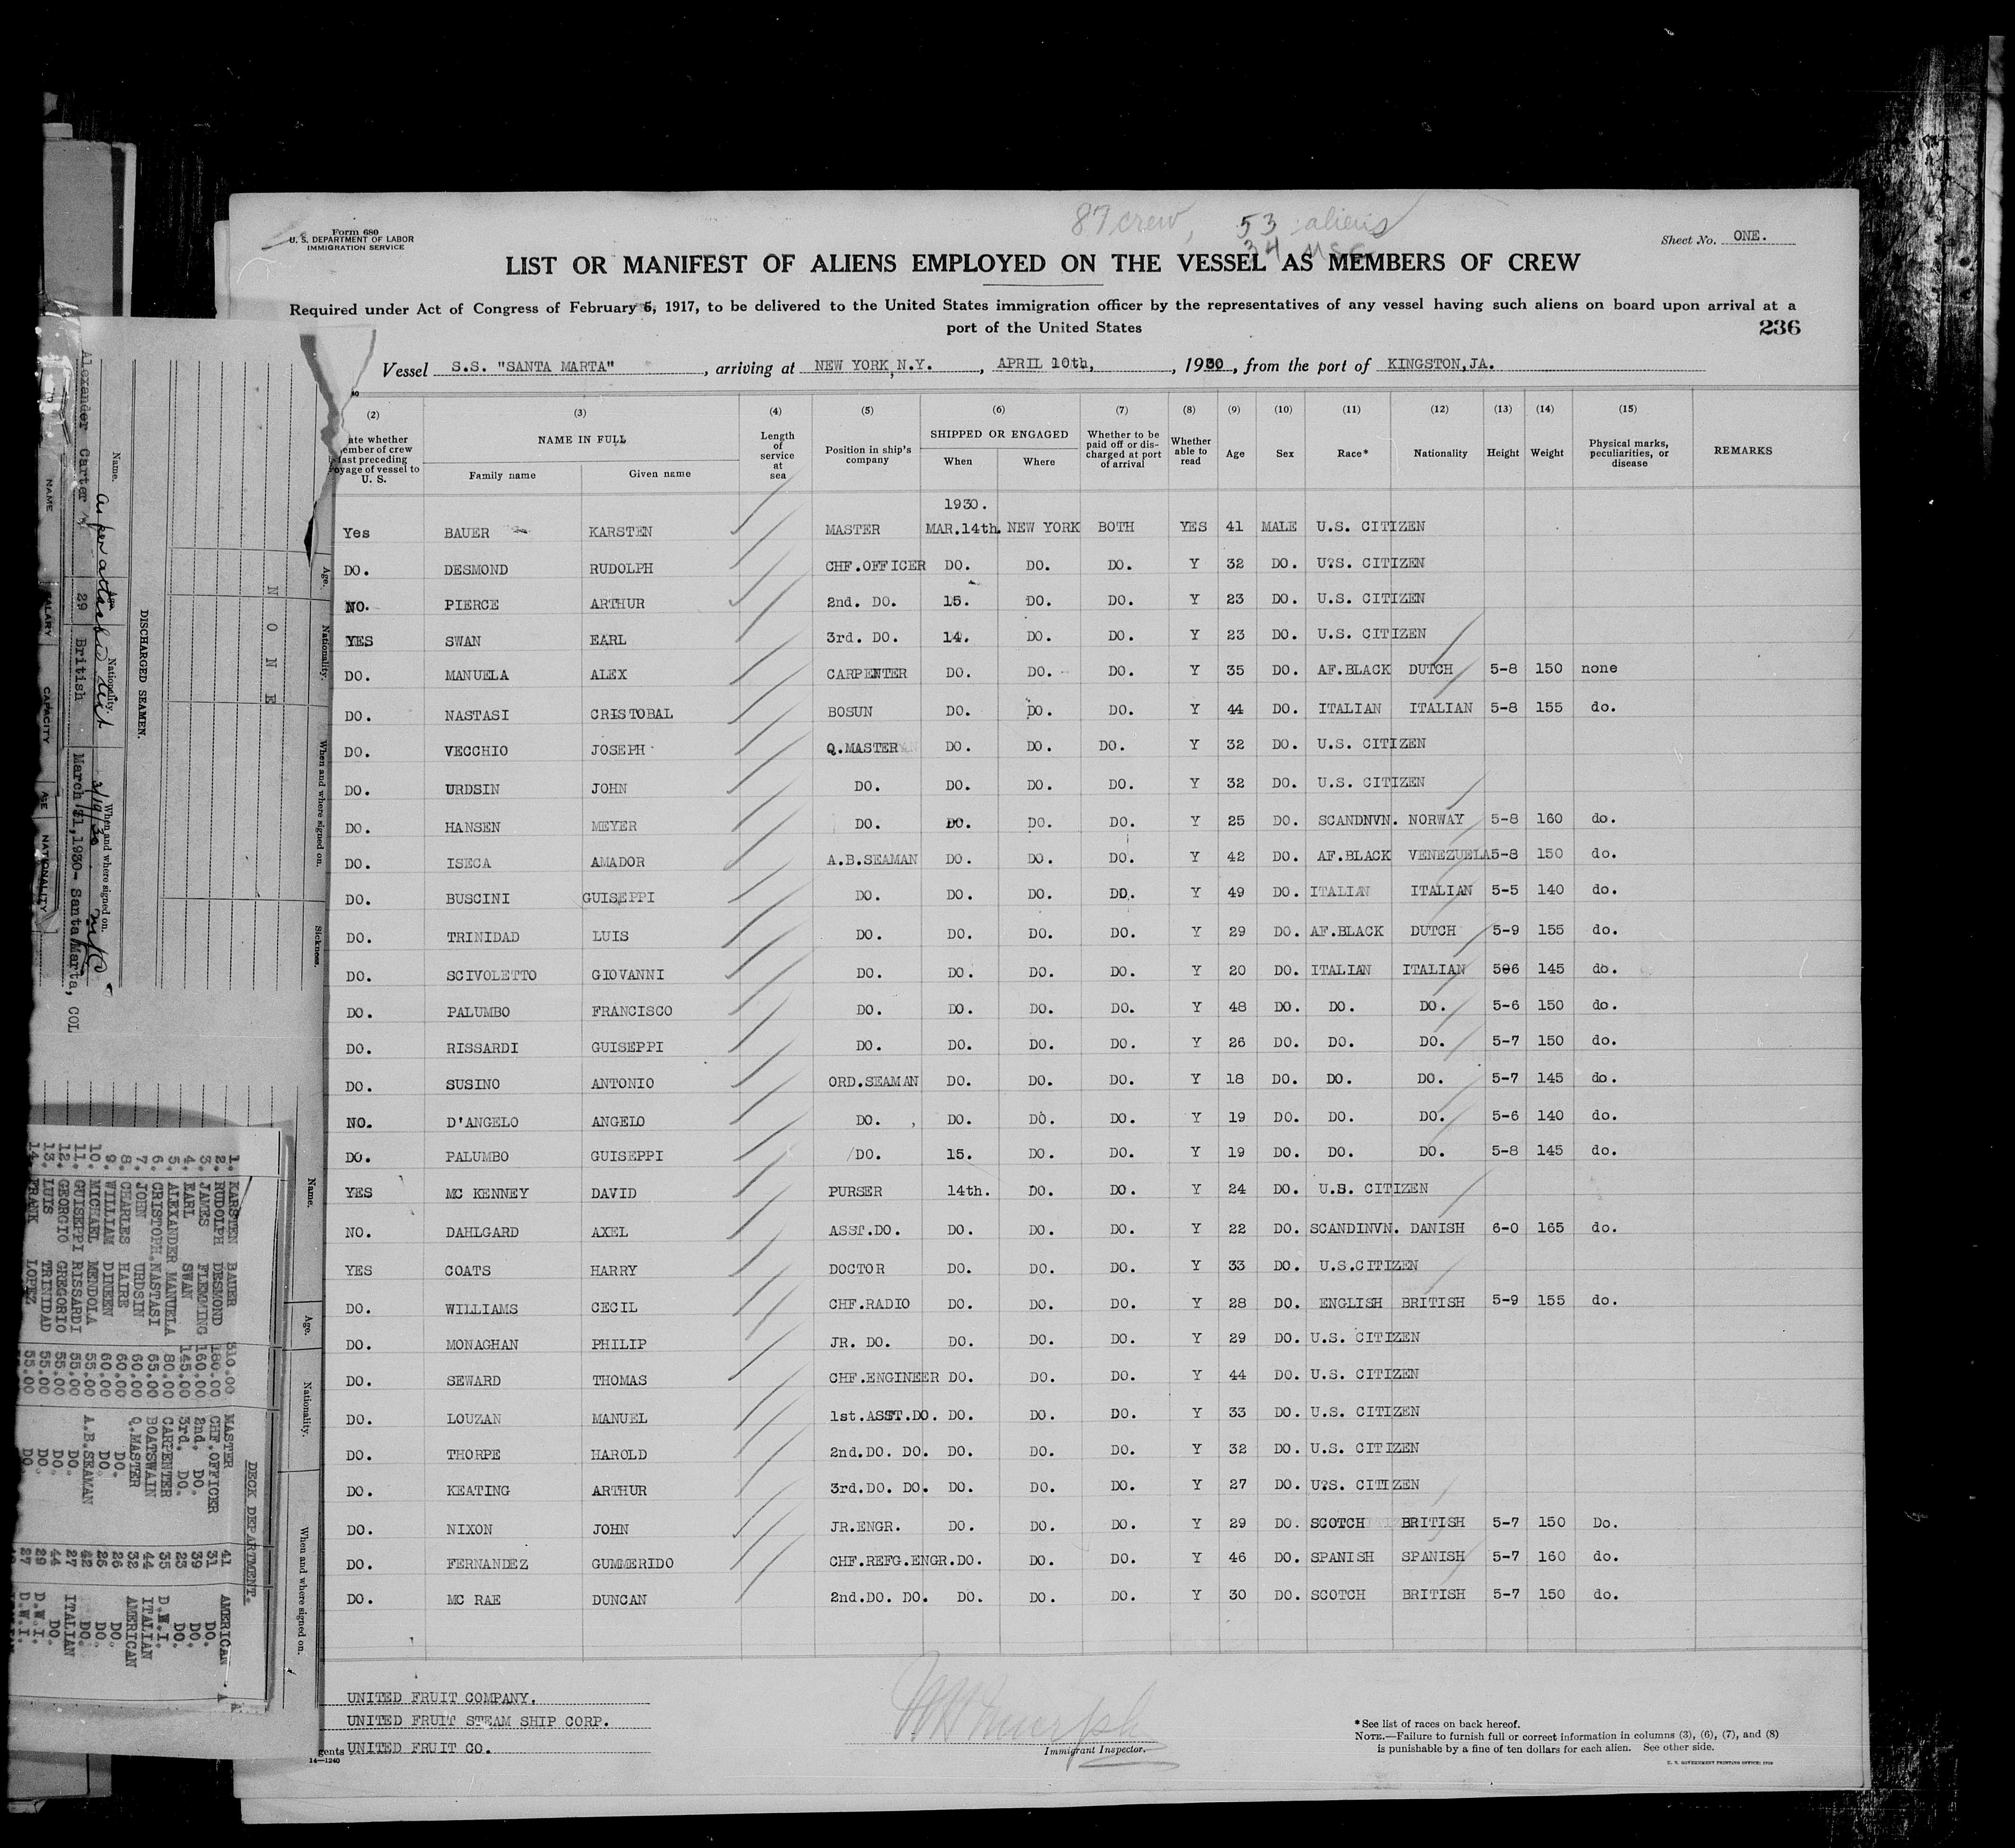 87 crew, 53 aliens
34 USC
Form 680
U. S. DEPARTMENT OF LABOR
IMMIGRATION SERVICE
Sheet No. ONE.
LIST OR MANIFEST OF ALIENS EMPLOYED ON THE VESSEL AS MEMBERS OF CREW
Required under Act of Congress of February 5, 1917, to be delivered to the United States immigration officer by the representatives of any vessel having such aliens on board upon arrival at a
port of the United States
236
Vessel S.S. "SANTA MARTA", arriving at NEW YORK, N.Y., APRIL 10th, 1930, from the port of KINGSTON, JA.
(2) (3) (4) (5) (6) (7) (8) (9) (10) (11) (12) (13) (14) (15)
ate whether member of crew last preceding voyage of vessel to U. S. NAME IN FULL Family name Given name Length of service at sea Position in ship's company SHIPPED OR ENGAGED When Where Whether to be paid off or discharged at port of arrival Whether able to read Age Sex Race* Nationality Height Weight Physical marks, peculiarities, or disease REMARKS
1930.
Yes BAUER KARSTEN MASTER MAR.14th. NEW YORK BOTH YES 41 MALE U.S. CITIZEN
DO. DESMOND RUDOLPH CHF.OFFICER DO. DO. DO. Y 32 DO. U?S. CITIZEN
NO. PIERCE ARTHUR 2nd. DO. 15. DO. DO. Y 23 DO. U.S. CITIZEN
YES SWAN EARL 3rd. DO. 14. DO. DO. Y 23 DO. U.S. CITIZEN
DO. MANUELA ALEX CARPENTER DO. DO. DO. Y 35 DO. AF.BLACK DUTCH 5-8 150 none
DO. NASTASI CRISTOBAL BOSUN DO. DO. DO. Y 44 DO. ITALIAN ITALIAN 5-8 155 do.
DO. VECCHIO JOSEPH Q.MASTER DO. DO. DO. Y 32 DO. U.S. CITIZEN
DO. URDSIN JOHN DO. DO. DO. DO. Y 32 DO. U.S. CITIZEN
DO. HANSEN MEYER DO. DO. DO. DO. Y 25 DO. SCANDNVN. NORWAY 5-8 160 do.
DO. ISECA AMADOR A.B.SEAMAN DO. DO. DO. Y 42 DO. AF.BLACK VENEZUELA 5-8 150 do.
DO. BUSCINI GUISEPPI DO. DO. DO. DO. Y 49 DO. ITALIAN ITALIAN 5-5 140 do.
DO. TRINIDAD LUIS DO. DO. DO. DO. Y 29 DO. AF.BLACK DUTCH 5-9 155 do.
DO. SCIVOLETTO GIOVANNI DO. DO. DO. DO. Y 20 DO. ITALIAN ITALIAN 506 145 do.
DO. PALUMBO FRANCISCO DO. DO. DO. DO. Y 48 DO. DO. DO. 5-6 150 do.
DO. RISSARDI GUISEPPI DO. DO. DO. DO. Y 26 DO. DO. DO. 5-7 150 do.
DO. SUSINO ANTONIO ORD.SEAMAN DO. DO. DO. Y 18 DO. DO. DO. 5-7 145 do.
NO. D'ANGELO ANGELO DO. DO. DO. DO. Y 19 DO. DO. DO. 5-6 140 do.
DO. PALUMBO GUISEPPI DO. 15. DO. DO. Y 19 DO. DO. DO. 5-8 145 do.
YES MC KENNEY DAVID PURSER 14th. DO. DO. Y 24 DO. U.S. CITIZEN
NO. DAHLGARD AXEL ASST.DO. DO. DO. DO. Y 22 DO. SCANDINVN. DANISH 6-0 165 do.
YES COATS HARRY DOCTOR DO. DO. DO. Y 33 DO. U.S.CITIZEN
DO. WILLIAMS CECIL CHF.RADIO DO. DO. DO. Y 28 DO. ENGLISH BRITISH 5-9 155 do.
DO. MONAGHAN PHILIP JR. DO. DO. DO. DO. Y 29 DO. U.S. CITIZEN
DO. SEWARD THOMAS CHF.ENGINEER DO. DO. DO. Y 44 DO. U.S. CITIZEN
DO. LOUZAN MANUEL 1st.ASST.DO. DO. DO. DO. Y 33 DO. U.S. CITIZEN
DO. THORPE HAROLD 2nd.DO. DO. DO. DO. DO. Y 32 DO. U.S. CITIZEN
DO. KEATING ARTHUR 3rd.DO. DO. DO. DO. DO. Y 27 DO. U?S. CITIZEN
DO. NIXON JOHN JR.ENGR. DO. DO. DO. Y 29 DO. SCOTCH BRITISH 5-7 150 Do.
DO. FERNANDEZ GUMMERIDO CHF.REFG.ENGR. DO. DO. DO. Y 46 DO. SPANISH SPANISH 5-7 160 do.
DO. MC RAE DUNCAN 2nd.DO. DO. DO. DO. DO. Y 30 DO. SCOTCH BRITISH 5-7 150 do.
UNITED FRUIT COMPANY.
UNITED FRUIT STEAM SHIP CORP.
gents UNITED FRUIT CO.
14—1240
Immigrant Inspector.
*See list of races on back hereof.
NOTE.—Failure to furnish full or correct information in columns (3), (6), (7), and (8)
is punishable by a fine of ten dollars for each alien. See other side.
U. S. GOVERNMENT PRINTING OFFICE: 1929
Age. Nationality. When and where signed on. Sickness.
NONE
DISCHARGED SEAMEN.
Name. Age Nationality. When and where signed on.
as per attached list 3/19/30
Alexander Carter 29 British March 31,1930- Santa Marta, COL
NAME SALARY CAPACITY AGE NATIONALITY
Name. Age. Nationality. When and where signed on.
DECK DEPARTMENT.
1. KARSTEN BAUER 310.00 MASTER 41 AMERICAN
2. RUDOLPH DESMOND 180.00 CHF.OFFICER 31 DO.
3. JAMES FLEMMING 160.00 2nd. DO. 39 DO.
4. EARL SWAN 145.00 3rd. DO. 23 DO.
5. ALEXANDER MANUELA 80.00 CARPENTER 35 D.W.I.
6. CRISTOPH.NASTASI 65.00 BOATSWAIN 44 ITALIAN
7. JOHN URDSIN 60.00 Q.MASTER 32 AMERICAN
8. CHARLES HAIRE 60.00 DO. 26 DO.
9. WILLIAM DINEEN 60.00 DO. 26 DO.
10. MICHAEL MENDOLA 55.00 A.B.SEAMAN 42 DO.
11. GUISEPPI RISSARDI 55.00 DO. 27 ITALIAN
12. GEORGIO GREGORIO 55.00 DO. 44 DO.
13. LUIS TRINIDAD 55.00 DO. 29 D.W.I.
14. FRANK LOPEZ 55.00 DO. 27 D.W.I.